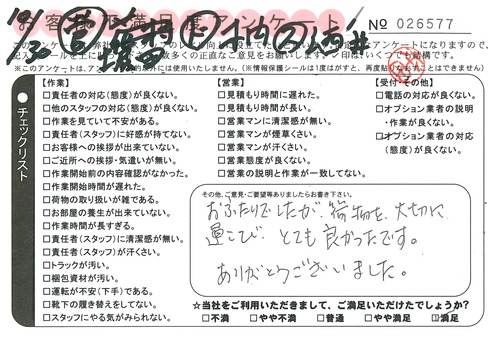 お客様満足度アンケート
№ 026577
【作業】
□責任者の対応(態度)が良くない。
□他のスタッフの対応(態度)が良くない。
□作業を見ていて不安がある。
□責任者(スタッフ)に好感が持てない。
□お客様への挨拶が出来ていない。
□ご近所への挨拶・気遣いが無い。
□作業開始前の内容確認がなかった。
□作業開始時間が遅れた。
□荷物の取り扱いが雑である。
□お部屋の養生が出来ていない。
□作業時間が長すぎる。
□責任者(スタッフ)に清潔感が無い。
□責任者(スタッフ)が汗くさい。
□トラックが汚い。
□梱包資材が汚い。
□運転が不安(下手)である。
□靴下の履き替えをしてない。
□スタッフにやる気がみられない。
【営業】
□見積もり時間に遅れた。
□見積もり時間が長い。
□営業マンに清潔感が無い。
□営業マンが煙草くさい。
□営業マンが汗くさい。
□営業態度が良くない。
□営業の説明と作業が一致してない。
【受付・その他】
□電話の対応が良くない。
□オプション業者の説明
・作業が良くない。
□オプション業者の対応
(態度)が良くない。
チェックリスト
その他、ご意見・ご要望等ありましたらお書き下さい。
おふたりでしたが、荷物を大切に
運こび、とても良かったです。
ありがとうございました。
☆当社をご利用いただきまして、ご満足いただけたでしょうか?
□不満 □やや不満 □普通 □やや満足 □満足